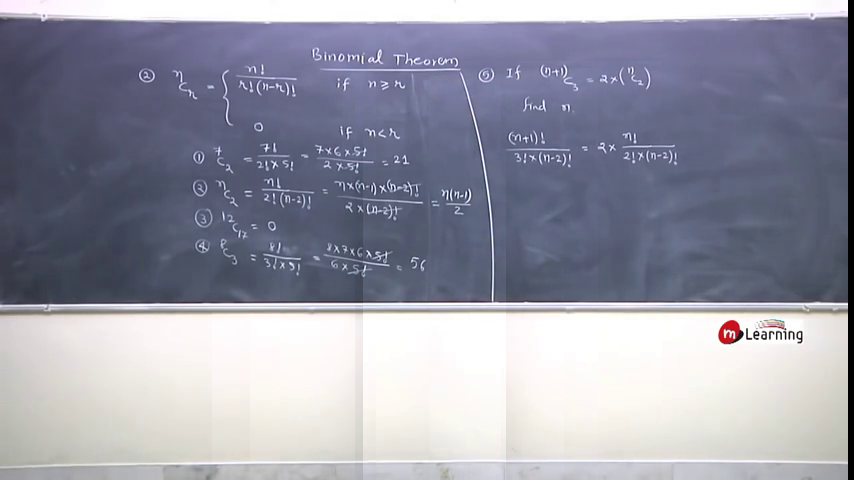 Binomial Theorem
② ⁿCᵣ = { n! / r!(n-r)! if n ≥ r
0 if n < r
① ⁷C₂ = 7! / 2!×5! = 7×6×5! / 2×5! = 21
② ⁿC₂ = n! / 2!(n-2)! = n×(n-1)×(n-2)! / 2×(n-2)! = n(n-1) / 2
③ ¹²C₁₇ = 0
④ ⁸C₃ = 8! / 3!×5! = 8×7×6×5! / 6×5! = 56
⑤ If ⁽ⁿ⁺¹⁾C₃ = 2×(ⁿC₂)
find n.
(n+1)! / 3!×(n-2)! = 2× n! / 2!×(n-2)!
m Learning